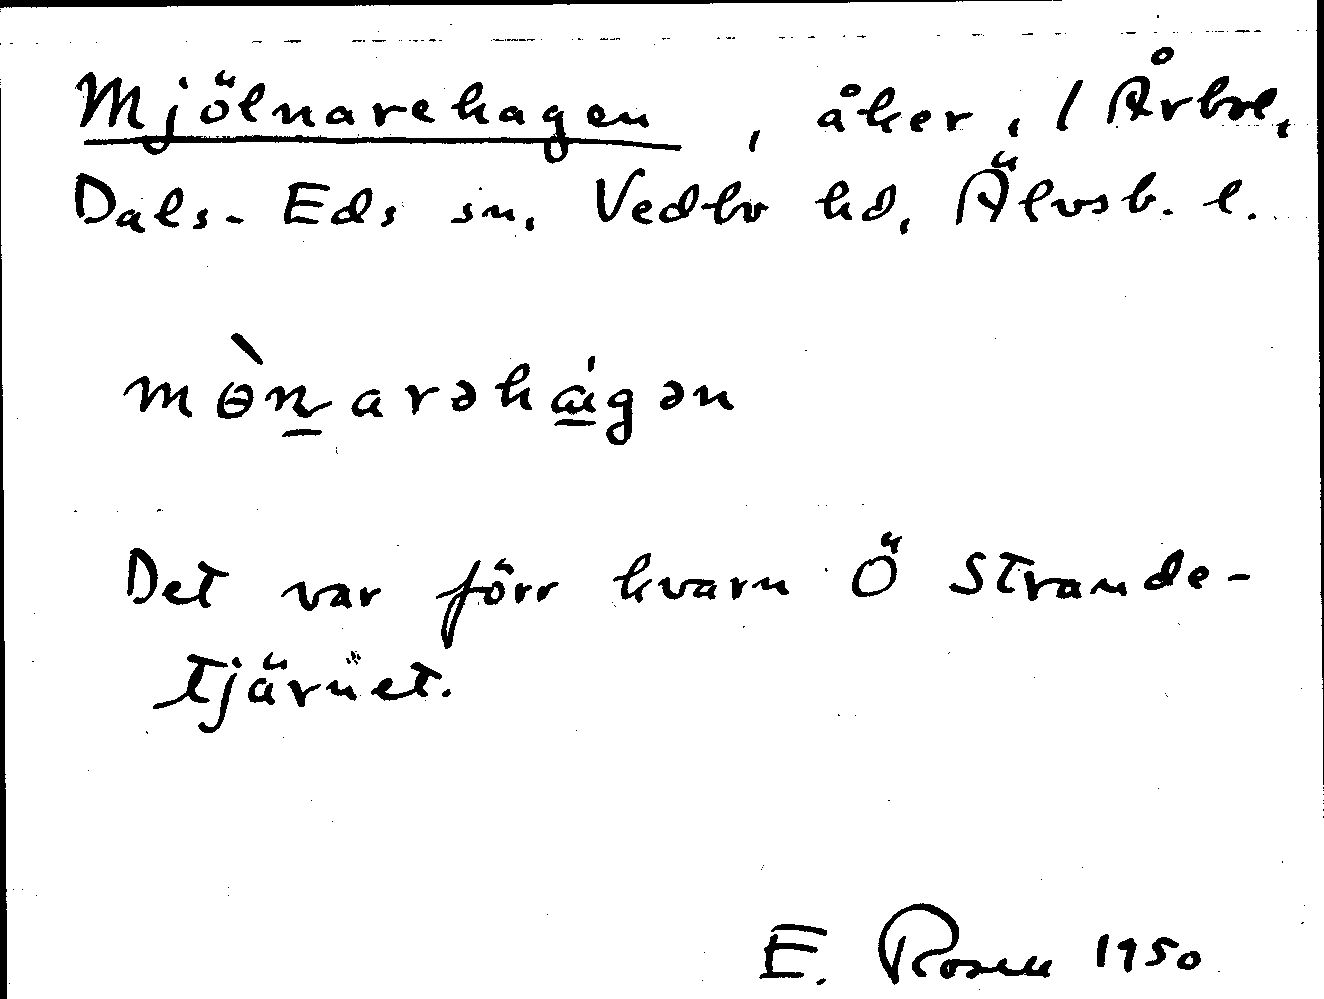 Mjölnarehagen, åker, / Årbol,
Dals-Eds sn, Vedbo hd, Älvsb. l.
mɵ̀n̠arəhá̠gən
Det var förr kvarn Ö Strande-
tjärnet.
E. Rosen 1950